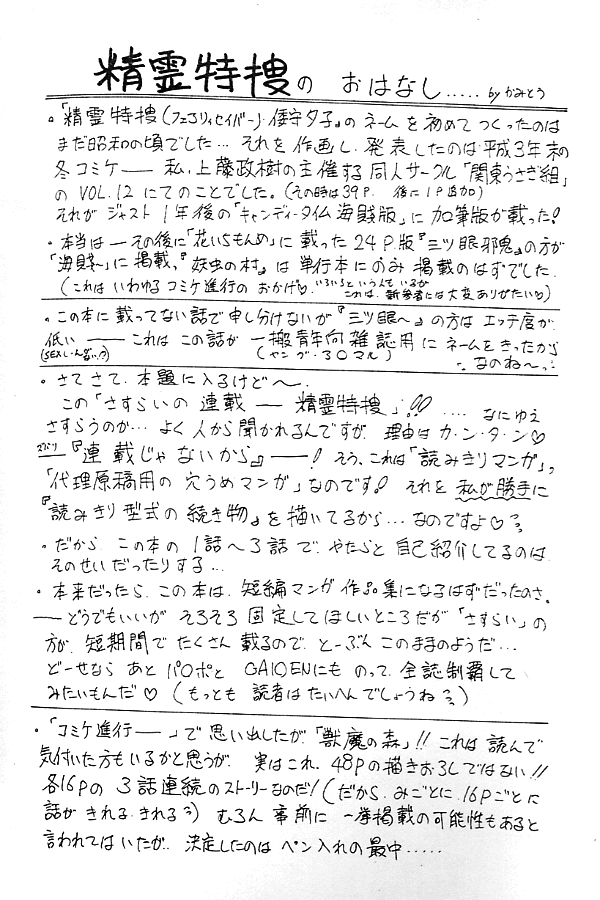 精霊特捜の おはなし..... by かみとう
。「精霊特捜(フェアリィセイバー)・倭守夕子』の ネームを 初めて つくったのは
まだ昭和の頃でした… それを 作画し、発表したのは 平成3年末の
冬コミケ―― 私、上藤政樹の主催する 同人サークル「関東うさぎ組」
の VOL.12 にてのことでした。(その時は39P. 後に1P追加)
それが ジャスト1年後の「キャンディータイム海賊版」に 加筆版が載った!
。本当は ― その後に「花いちもんめ」に載った 24P版『三ツ眼邪鬼』の方が
「海賊〜」に掲載、『妖虫の村』は 単行本にのみ 掲載のはずでした。
(これは いわゆる コミケ進行の おかげ♡ いろいろという人も いるが これは、新参者には大変ありがたい♡)
。この本に載ってない話で申し分けないが『三ツ眼〜』の方は エッチ度が
低い ―― これは この話が 一搬青年向雑誌用に ネームをきったから
(ヤング・30マル) なのね〜
。さてさて、本題に入るけど〜
この「さすらいの 連載 ― 精霊特捜」!! .... なにゆえ
さすらうのか… よく 人から聞かれるんですが、理由は カ・ン・タ・ン♡
『連載じゃないから』――! そう、これは「読みきりマンガ」、
「代理原稿用の 穴うめマンガ」なのです! それを 私が勝手に
『読みきり型式の 続き物』を 描いてるから… なのですよ♡
。だから、この本の 1話〜3話 で、やたらと 自己紹介してるのは
そのせいだったりする…
。本来だったら、この本は、短編マンガ作品集になるはずだったのさ。
――どうでもいいが そろそろ 固定してほしいところだが「さすらい」の
方が、短期間で たくさん 載るので、とーぶん このままのようだ…
どーせなら あと パロポと GAIDENにも のって、全誌制覇して
みたいもんだ♡ (もっとも 読者は たいへんでしょうね)
。「コミケ進行――」で 思い出したが、「獣魔の森」!! これは 読んで
気付いた方もいるかと思うが、実はこれ、48Pの描きおろしではない!!
各16Pの 3話連続のストーリーなのだ!(だから、みごとに、16Pごとに
話が きれる、きれる) むろん 事前に 一挙掲載の可能性もあると
言われてはいたが、決定したのは ペン入れの最中.....